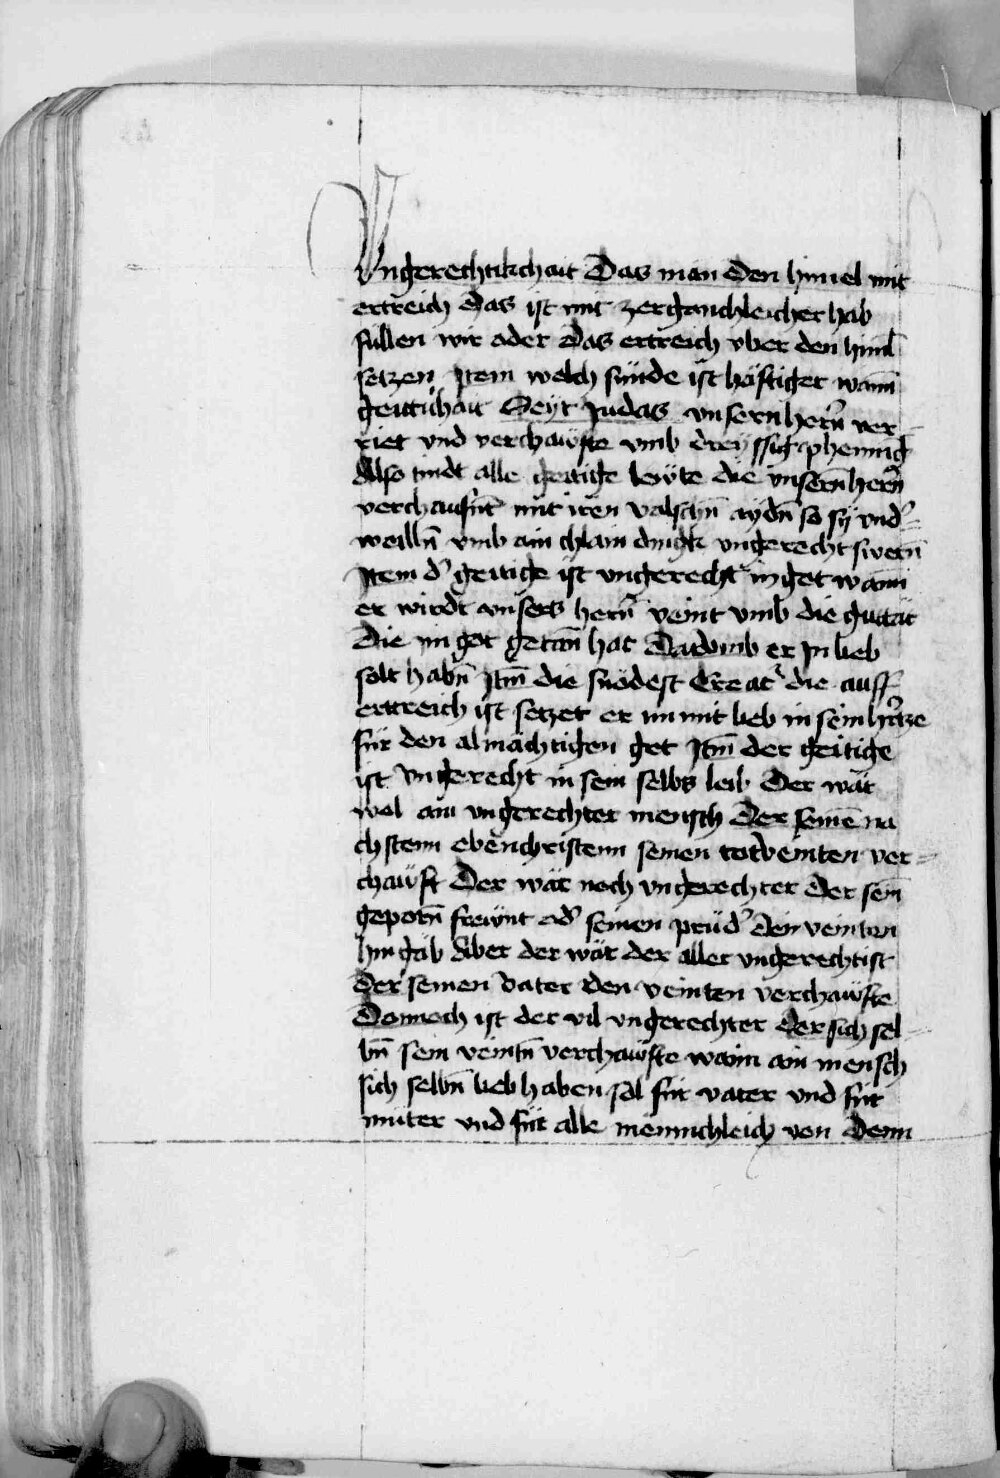 Vngerechtikchait Das man den himel mit
ertreich das ist mit zergänchleicher hab
füllen wir oder das ertreich vber den himl
setzen Item welch sünde ist häftiger wann
geitichait Seyt Judas vnsern herrn ver¬
riet vnd verchawfte vmb dreyssig phennig
Also tudt alle geitige lewte die vnsern herrn
verchaufnt mit iren valschn aydn so sy vnd'¬
weilln vmb ain chlain dingk vngerecht swern
Item d' geitige ist vngerecht in got wann
er wirdt vnsers herrn veint vmb die guttät
die im got getan hat Darvmb er In lieb
solt habn Itm die snödest Creat' die auff
ertreich ist setzet er im mit lieb in sein hertze
für den almächtigen got Itm der geitige
ist vngerecht in sein selbs leib Der wär
wol ain vngerechter mensch Der seinē na
chstenn ebenchristenn seinen totveinten ver¬
chawft Der wär noch vngerechter Der sein
geporn frewnt od' seinen prüd' den veintn
hin gäb Aber der wär der aller vngerechtist
Der seinen vater den veinten verchawfte
Dannoch ist der vil vngerechter Der sich sel¬
bn sein veintn verchawfte wann ain mensch
sich selbn lieb haben sol für vater vnd für
muter vnd für alle mennichleich von denn